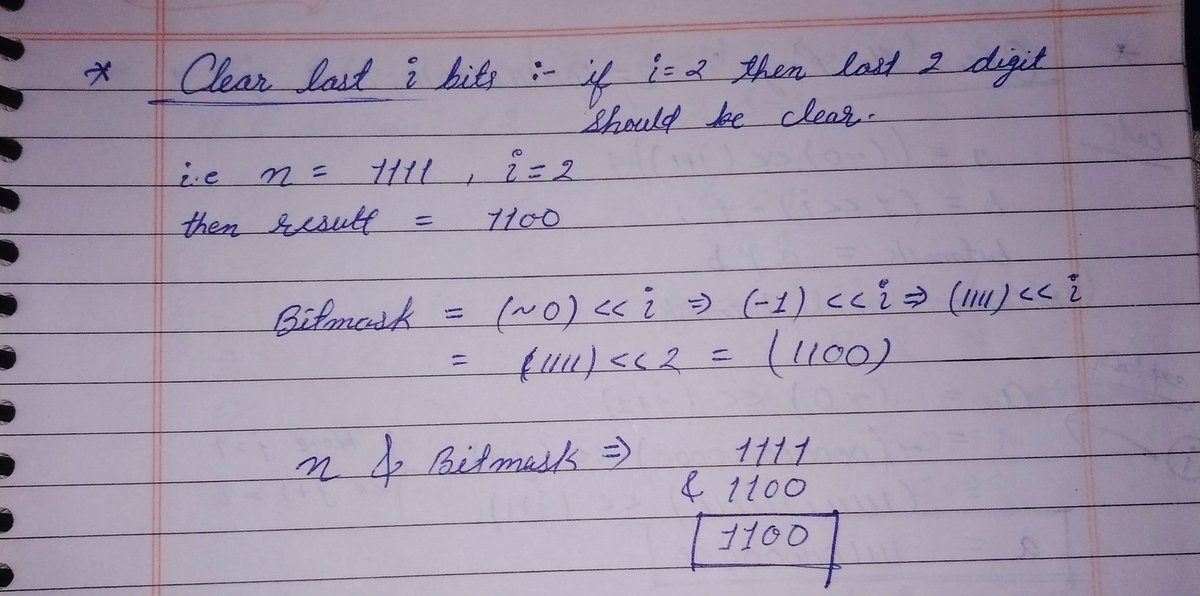 * Clear last i bits :- if i=2 then last 2 digit
should be clear.
i.e n = 1111 , i=2
then result = 1100
Bitmask = (~0) << i ⇒ (-1) << i ⇒ (1111) << i
= (1111) << 2 = (1100)
n & Bitmask ⇒ 1111
& 1100
1100